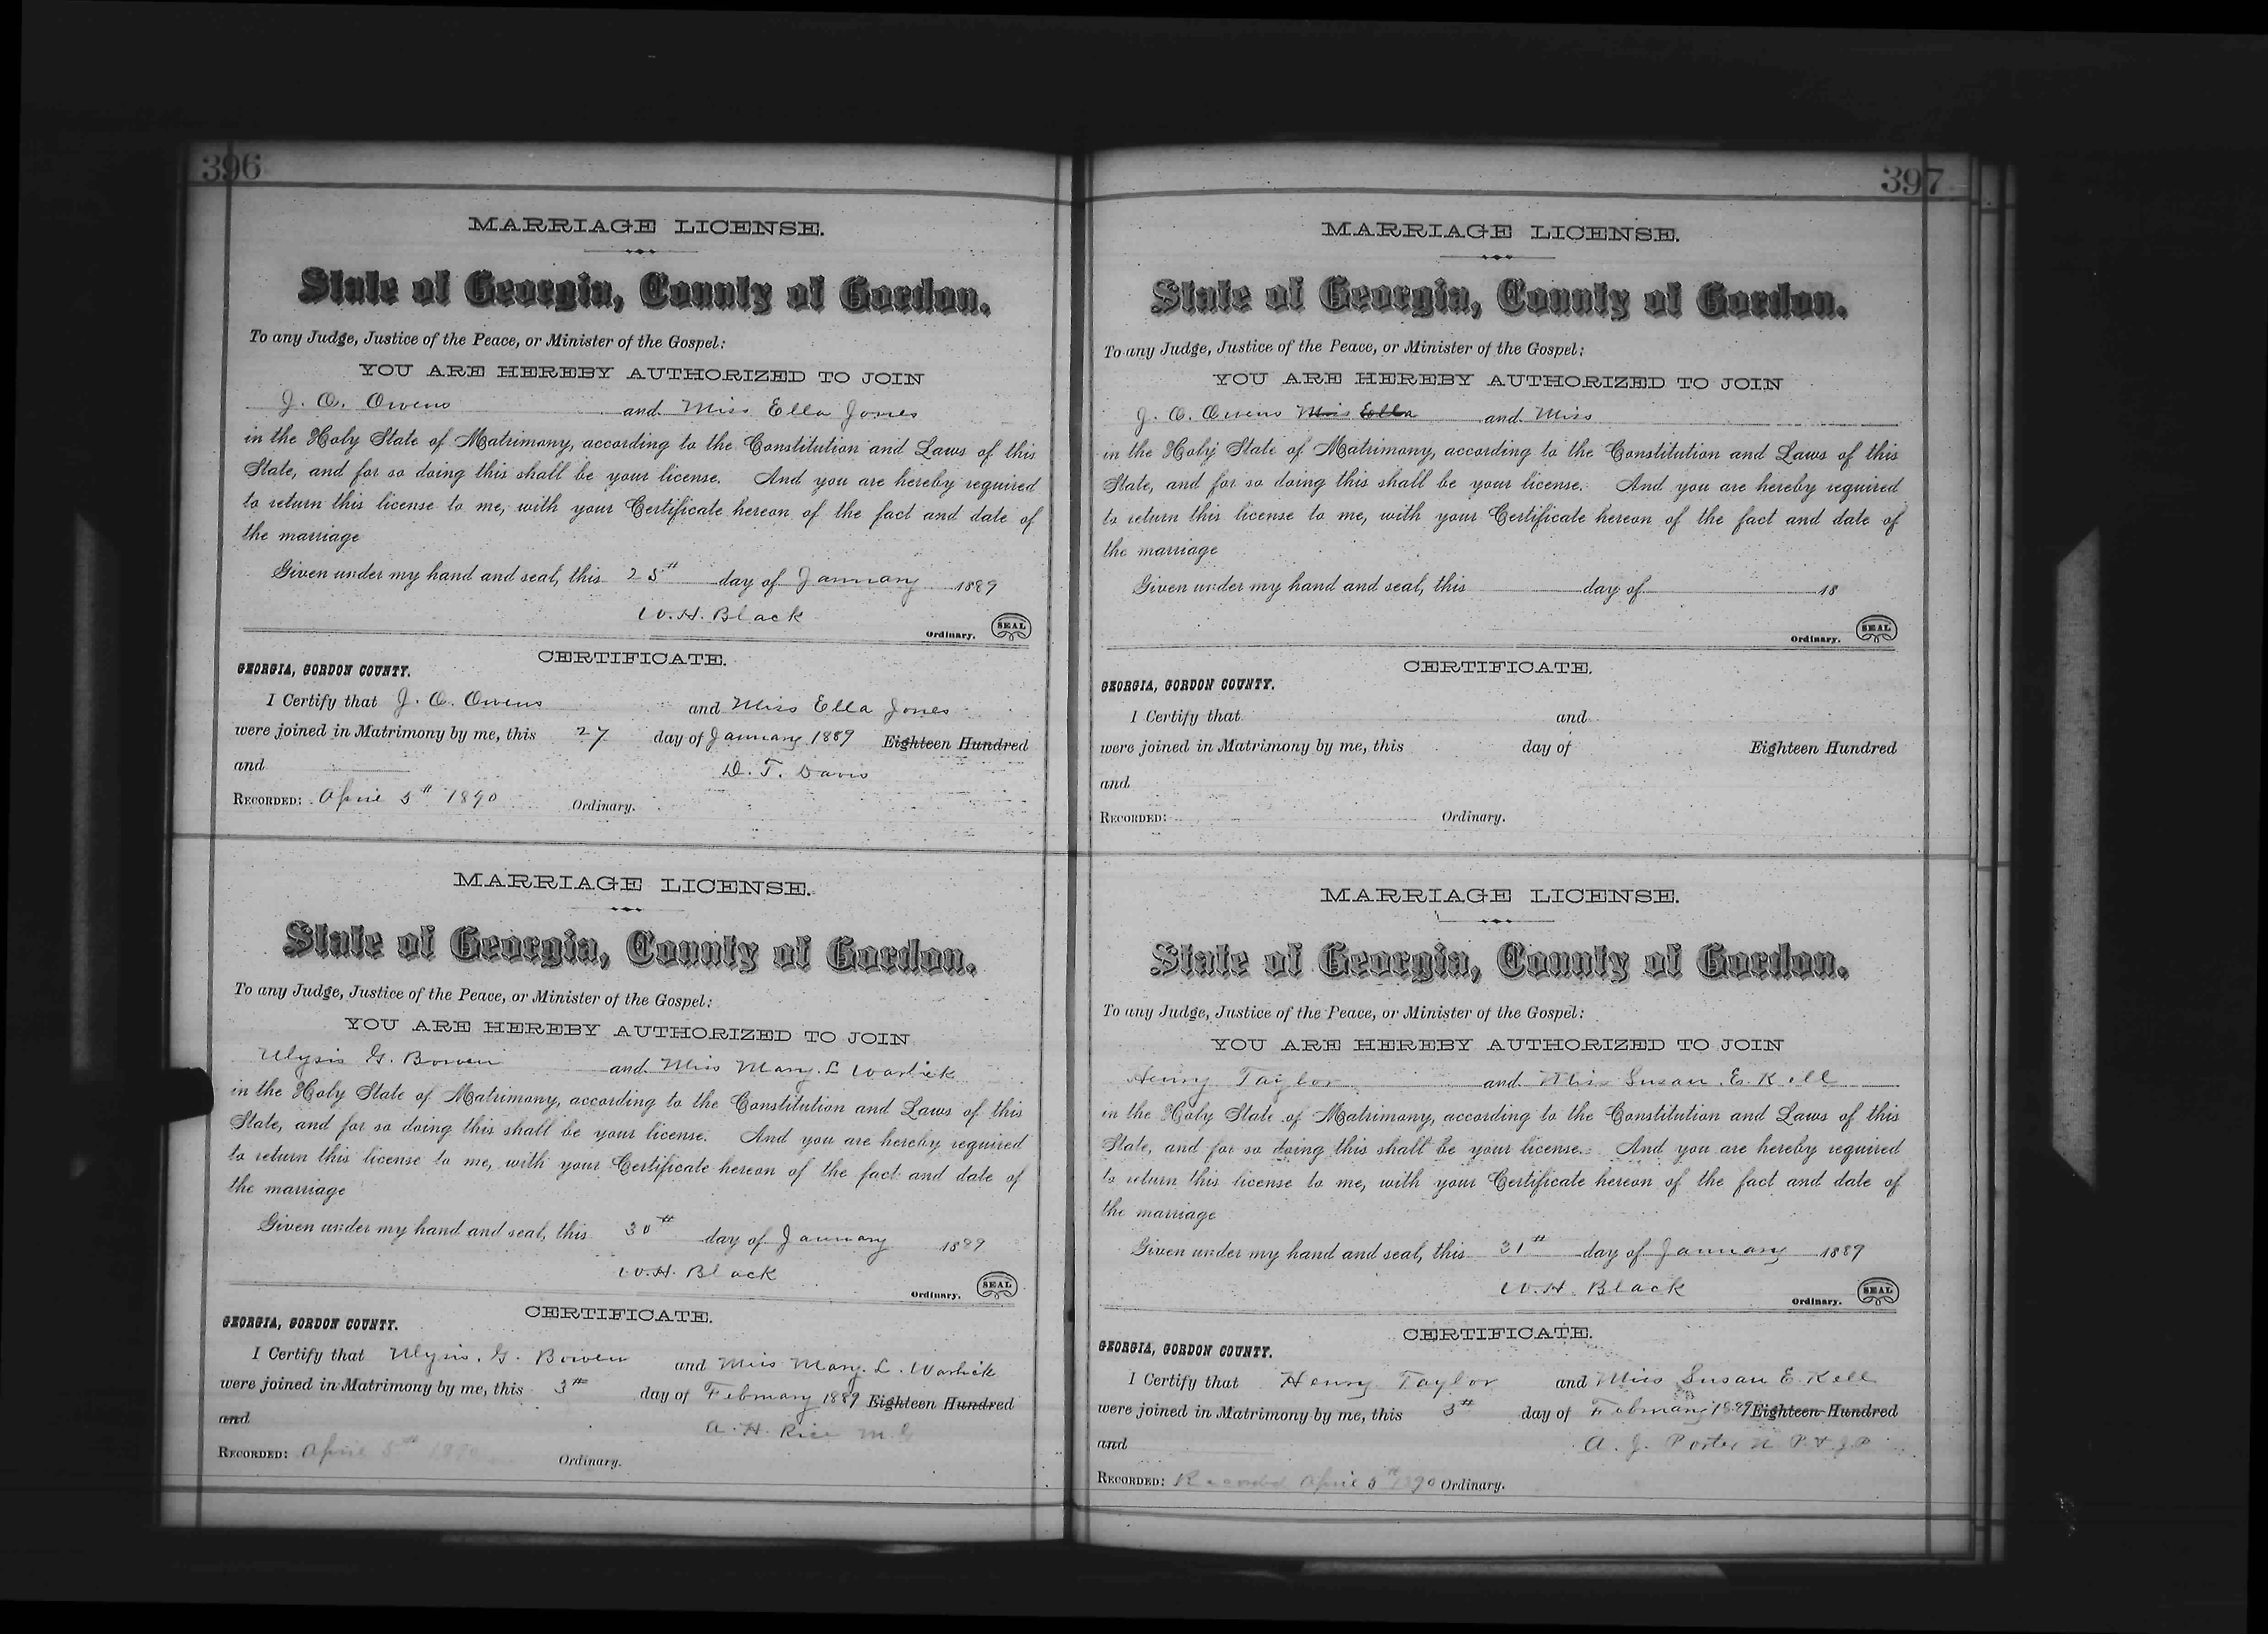 396
MARRIAGE LICENSE.
State of Georgia, County of Gordon.
To any Judge, Justice of the Peace, or Minister of the Gospel:
YOU ARE HEREBY AUTHORIZED TO JOIN
J. O. Owens and Miss Ella Jones
in the Holy State of Matrimony, according to the Constitution and Laws of this
State, and for so doing this shall be your license. And you are hereby required
to return this license to me, with your Certificate hereon of the fact and date of
the marriage
Given under my hand and seal, this 25th day of January 1889
W. H. Black
Ordinary. SEAL
CERTIFICATE.
GEORGIA, GORDON COUNTY.
I Certify that J. O. Owens and Miss Ella Jones
were joined in Matrimony by me, this 27 day of January 1889 Eighteen Hundred
and D. T. Davis
RECORDED: April 5th 1890 Ordinary.
MARRIAGE LICENSE.
State of Georgia, County of Gordon.
To any Judge, Justice of the Peace, or Minister of the Gospel:
YOU ARE HEREBY AUTHORIZED TO JOIN
Ulysis G. Bowen and Miss Mary. L Warlick
in the Holy State of Matrimony, according to the Constitution and Laws of this
State, and for so doing this shall be your license. And you are hereby required
to return this license to me, with your Certificate hereon of the fact and date of
the marriage
Given under my hand and seal, this 30th day of January 1889
W. H. Black
Ordinary. SEAL
CERTIFICATE.
GEORGIA, GORDON COUNTY.
I Certify that Ulysis. G. Bowen and Miss Mary. L. Warlick
were joined in Matrimony by me, this 3th day of February 1889 Eighteen Hundred
and A. H. Rice M. G
RECORDED: April 5th 1890 Ordinary.
397
MARRIAGE LICENSE.
State of Georgia, County of Gordon.
To any Judge, Justice of the Peace, or Minister of the Gospel:
YOU ARE HEREBY AUTHORIZED TO JOIN
J. O. Owens Miss Ella and Miss
in the Holy State of Matrimony, according to the Constitution and Laws of this
State, and for so doing this shall be your license. And you are hereby required
to return this license to me, with your Certificate hereon of the fact and date of
the marriage
Given under my hand and seal, this day of 18
Ordinary. SEAL
CERTIFICATE.
GEORGIA, GORDON COUNTY.
I Certify that and
were joined in Matrimony by me, this day of Eighteen Hundred
and
RECORDED: Ordinary.
MARRIAGE LICENSE.
State of Georgia, County of Gordon.
To any Judge, Justice of the Peace, or Minister of the Gospel:
YOU ARE HEREBY AUTHORIZED TO JOIN
Henry Taylor and Miss Susan. E. Kell
in the Holy State of Matrimony, according to the Constitution and Laws of this
State, and for so doing this shall be your license. And you are hereby required
to return this license to me, with your Certificate hereon of the fact and date of
the marriage
Given under my hand and seal, this 31th day of January 1889
W. H. Black
Ordinary. SEAL
CERTIFICATE.
GEORGIA, GORDON COUNTY.
I Certify that Henry Taylor and Miss Susan E. Kell
were joined in Matrimony by me, this 3th day of February 1889 Eighteen Hundred
and A. J. Porter N. P. & J P
RECORDED: Recorded April 5th 1890 Ordinary.